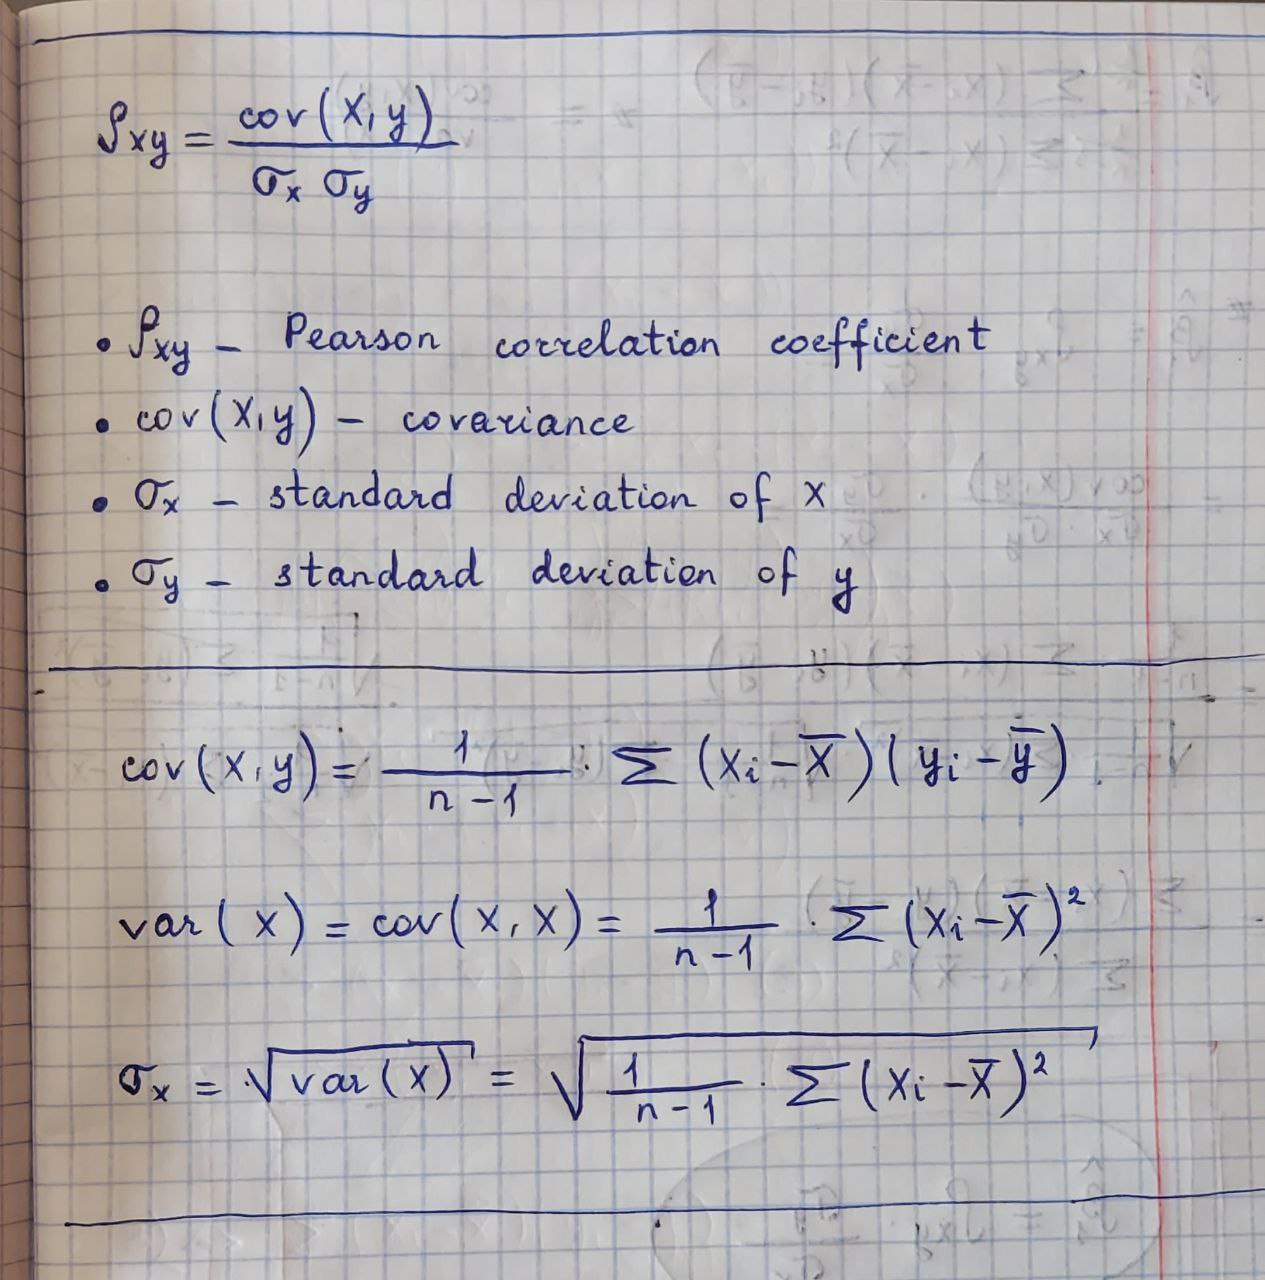 ρxy = cov(x,y) / σx σy
• ρxy – Pearson correlation coefficient
• cov(x,y) – covariance
• σx – standard deviation of x
• σy – standard deviation of y
cov(x,y) = 1/(n-1) · Σ(xi - x̄)(yi - ȳ)
var(x) = cov(x,x) = 1/(n-1) · Σ(xi - x̄)²
σx = √var(x) = √(1/(n-1) · Σ(xi - x̄)²)